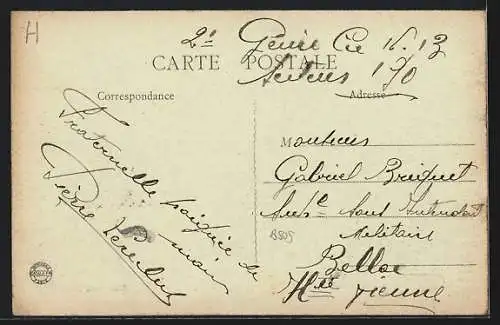 H
2e Génie Cie 16.13
Secteur 170
CARTE POSTALE
Correspondance
Adresse
Fraternelle poignée de
main
Pierre
Monsieur
Gabriel Briquet
Sous Intendant
Militaire
Bellac
Hte Vienne
B505